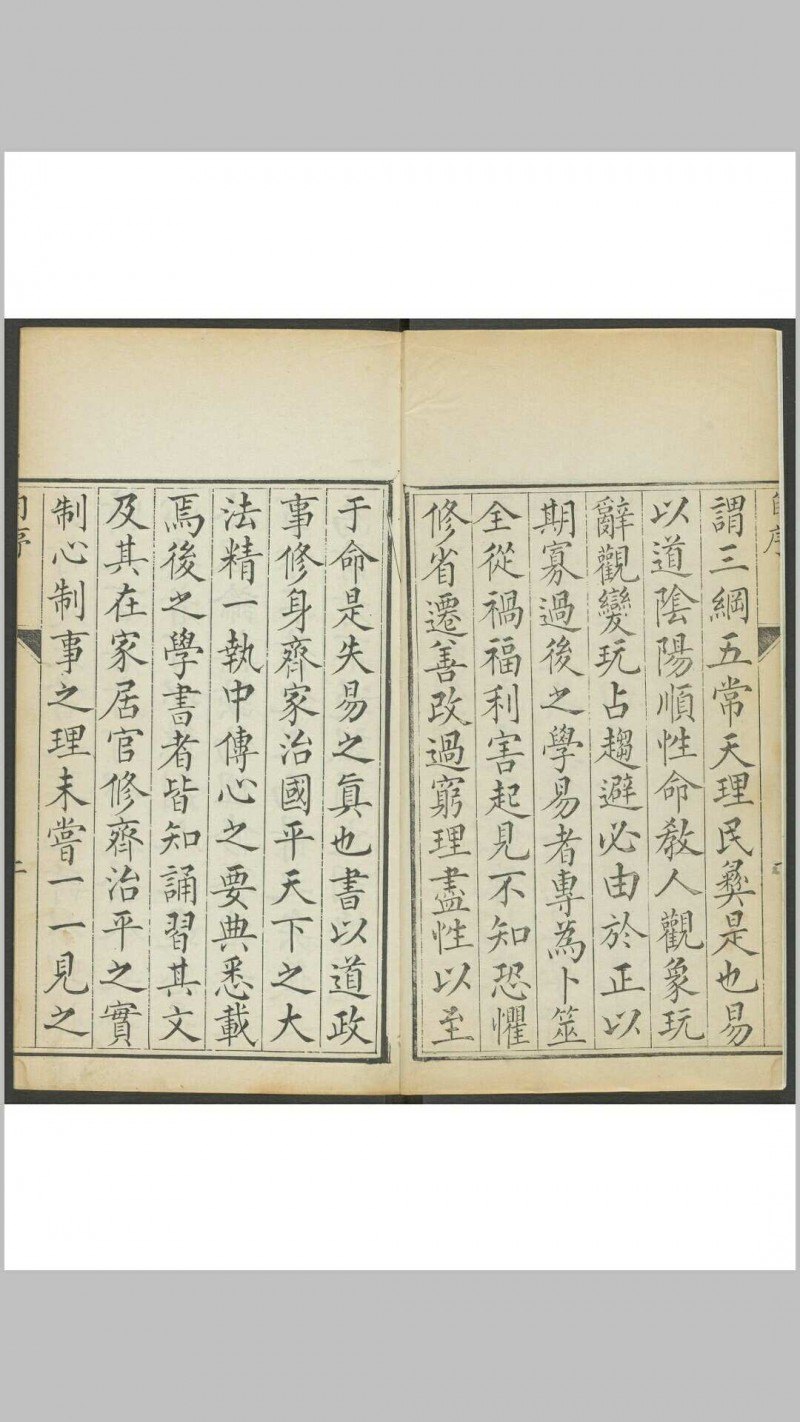 自序
謂三綱五常天理民彝是也易
以道陰陽順性命教人觀象玩
辭觀變玩占趨避必由於正以
期寡過後之學易者專為卜筮
全從禍福利害起見不知恐懼
修省遷善改過窮理盡性以至
于命是失易之眞也書以道政
事修身齊家治國平天下之大
法精一執中傳心之要典悉載
焉後之學書者皆知誦習其文
及其在家居官修齊治平之實
制心制事之理未嘗一一見之
自序